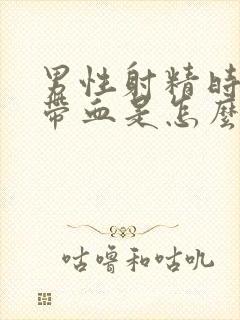 男性射精時
帶血是怎麼
咕噜和咕叽